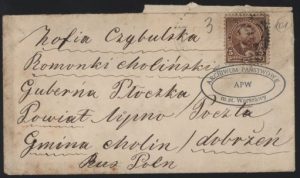 3
Zofia Czybulska
Romonki cholińskie
Guberna Płoczka
Powiat lipno Poczta
Gmina cholin / dobrzeń
Rus Poln
5
ARCHIWUM PAŃSTWOWE
APW
m.st. Warszawy